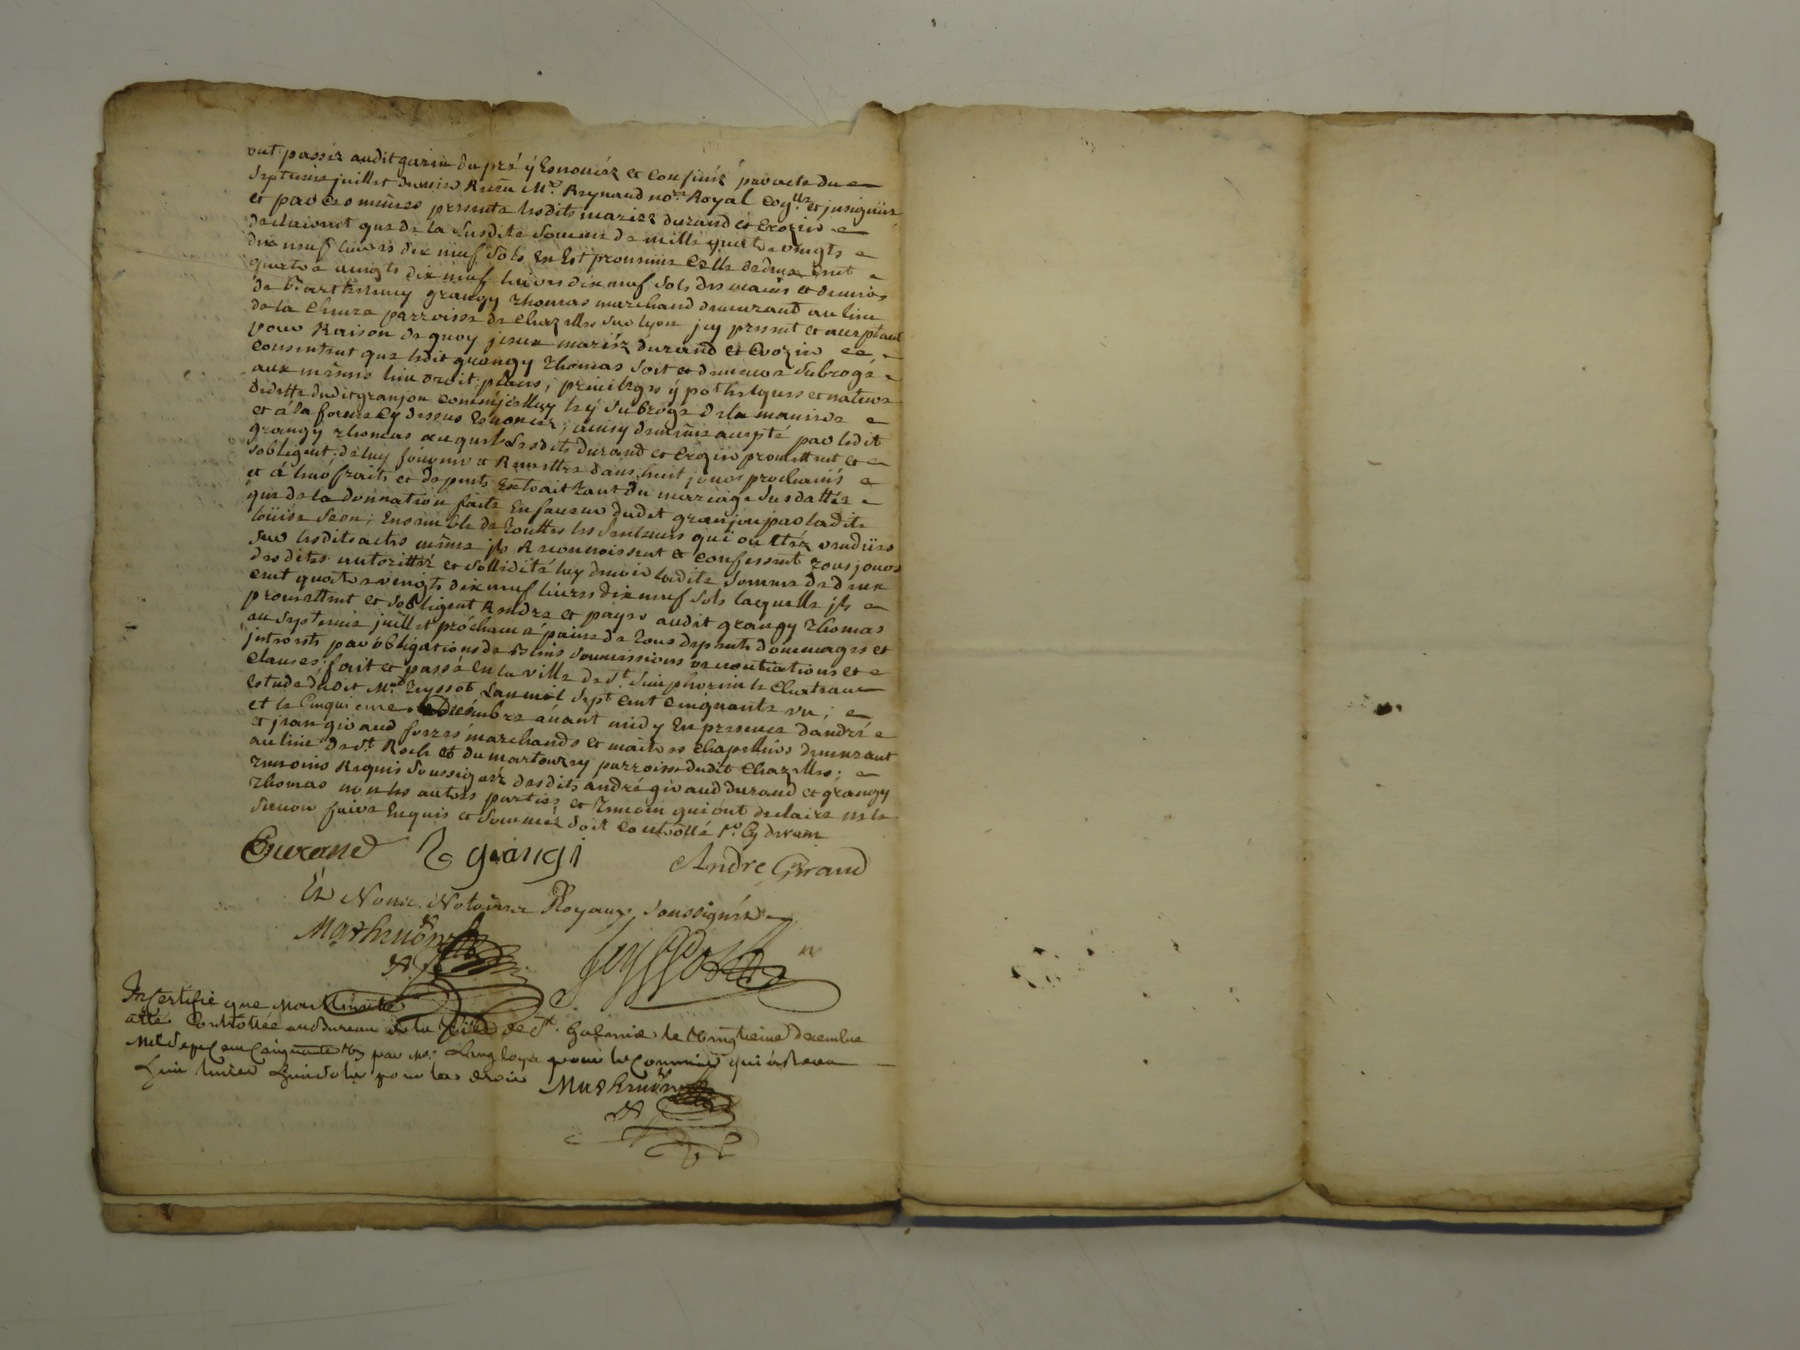 ont passéz audit garin du pré ÿ Esnoncéz et confinéz par acte du
septieme juillet dernier Receu Me. Reynaud nore. Royal et jnsignüé
et par ces mêmes presentes lesdits mariez durand et Crozier
declairent que de la susdite somme de mille quatre vingts
dix neuf livres dix neuf sols en Est provenüe Celle de deux cent
quatre vingts dix neuf livres dix neuf sols des mains et deniers
de Barthelemy grangy Thomas marchand demeurant au lieu
de la parroisse de Chazelles sur lyon jcy present et acceptant
pour Raison de quoy jceux mariéz durand et Crozier
Consentent que ledit grangy Thomas soit et demeure subrogé
aux mêmes lieu droit place, privileges ÿpotheques et nature
de dette dudit granjon comme jls l'ÿ subroge de la maniere
et a la forme cy dessus Esnoncéz, ainsy de même accepté par ledit
grangy Thomas auquel lesdits durand et Crozier promettent et
sobligent de luy fournir et Remettre dans huit jours prochains
et á leurs fraits et depents Extrait tant du mariage susdatté
que de la donnation faite En faveur dudit granjon par ladite
loüise Seon; Ensemble de touttes les
sur lesdits actes même jls Reconnoissent et confessent tous jours
desdites autorittéz et sollidité luy devoir ladite somme de deux
cent quatre vingts dix neuf livres dix neuf sols laquelle jls
promettent et sobligent Rendre et payer audit grangy Thomas
au septieme juillet prochain á peine de tous depents dommages et
jnterests par obligations de biens soumissions renontiations et
clauses; fait et passé en la ville de St. simphorien le Chateau
estude dudit Me. Teyssot Lan mil sept cent cinquante un;
et le Cinquieme Décembre avant midy En presence d'andré
et jean giraud freres marchands et maitres chapelliers demeurant
au lieu de St. Roch et du martouray parroisse dudit Chazelles;
temoins Requis soussignéz desdits andré giraud durand et grangy
Thomas non les autres parties et temoin qui ont declairé ne le
scavoir faire Enquis et sommés soit controllé
Durand T grangi Andre Giraud
Et Nous Notaires Royaux soussignéz

Je certifie que Ma Minutte
a été Controllée au Bureau de la Ville de St. Galmié le vingtieme Decembre
Mil Sept Cent Cinquante un par Mr. Langloys pour le Commis qui a Receu
livres sols pour les droits